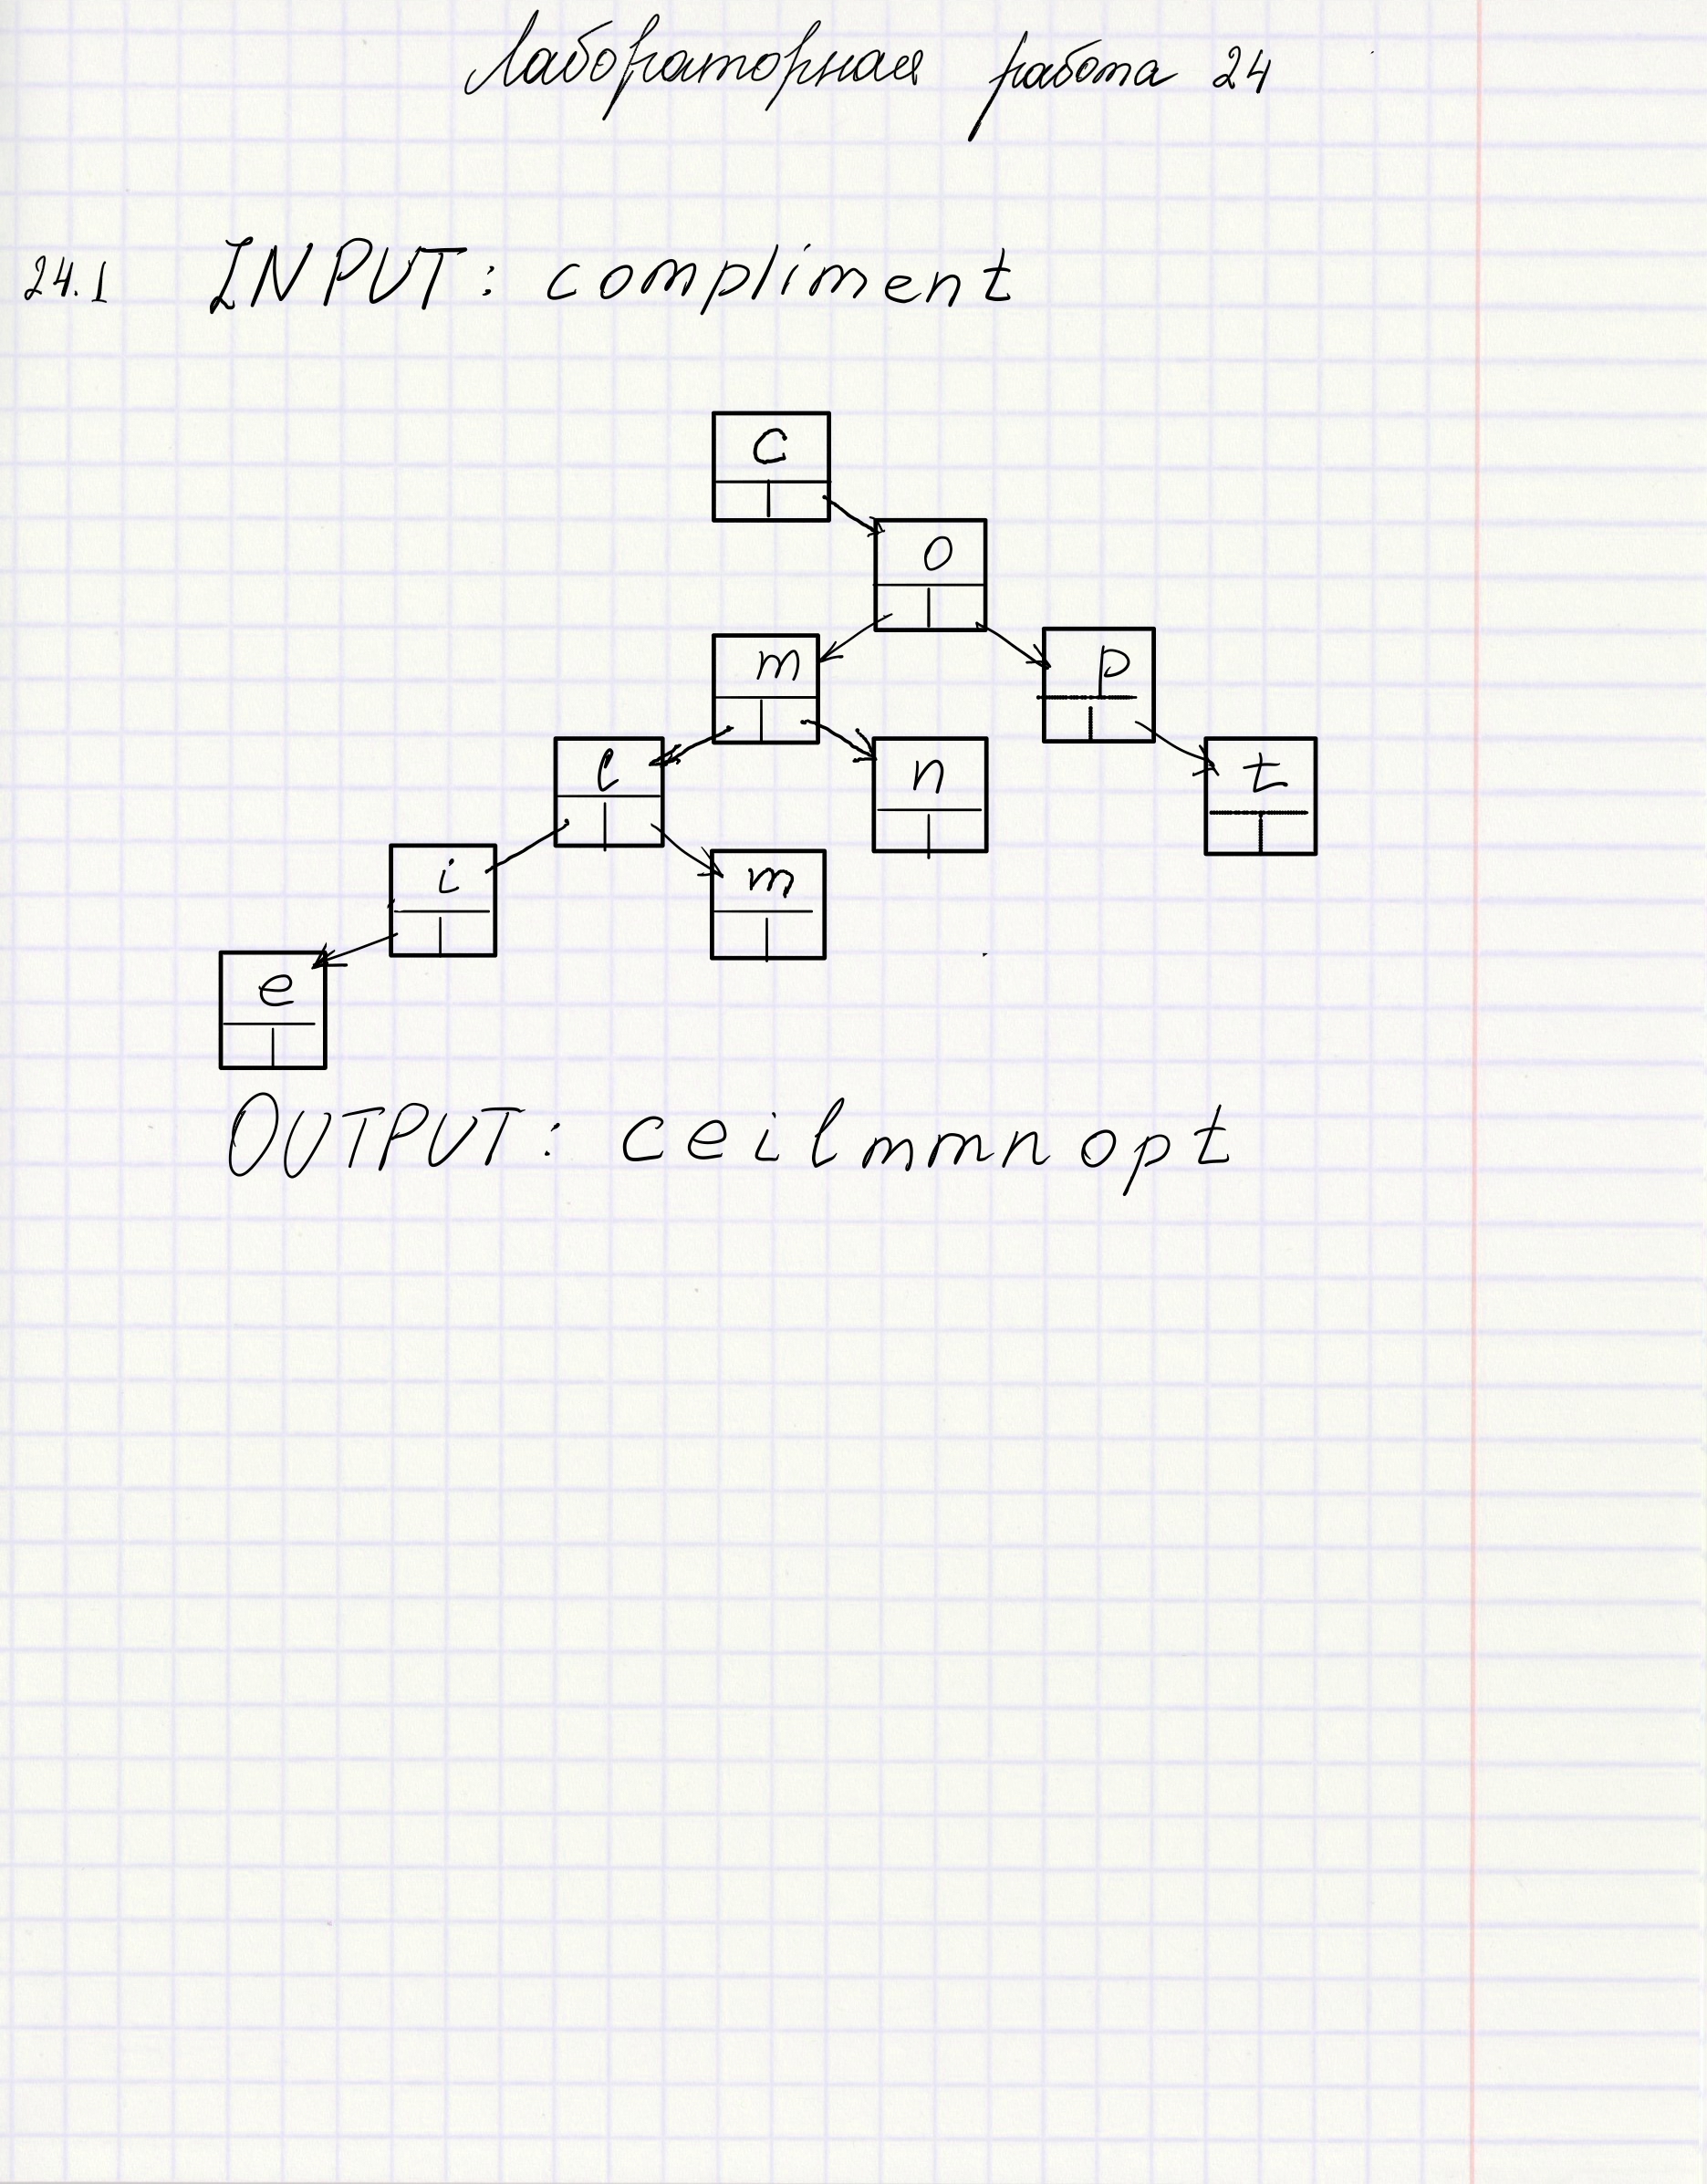 Лабораторная работа 24
24.1 INPUT: compliment
c
o
m p
l n t
i m
e
OUTPUT: ceilmmnopt